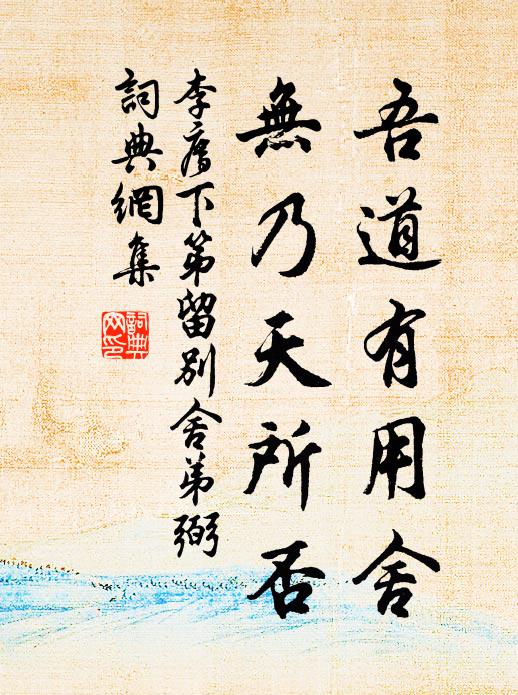 吾道有用舍
無乃天所否
李廌下第留別舍弟弼
詞典網集
詞典網印